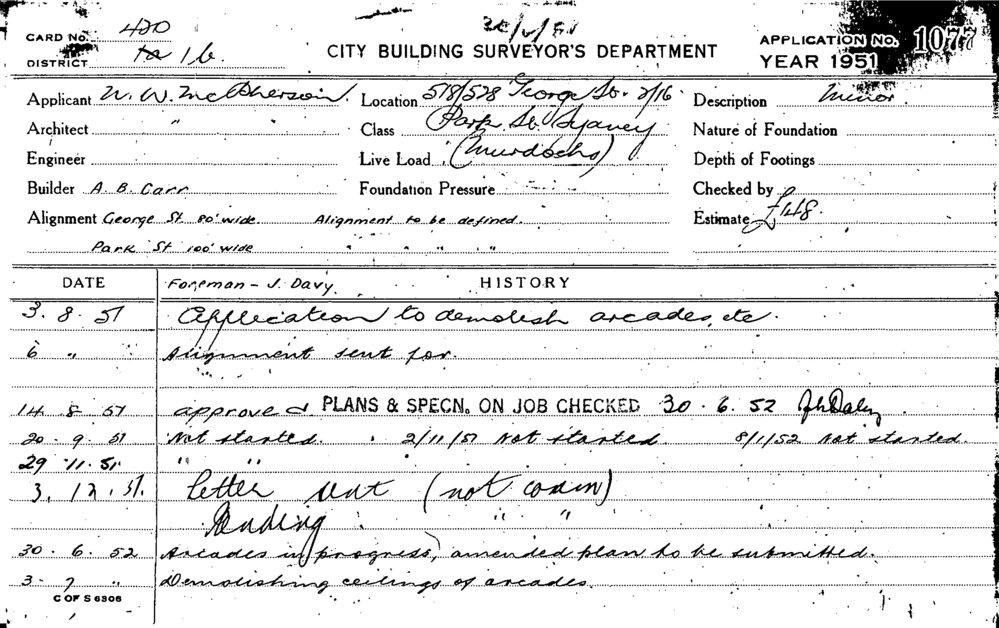 CARD No. 420
DISTRICT 16.
CITY BUILDING SURVEYOR'S DEPARTMENT
APPLICATION No. 1077
YEAR 1951
Applicant W. W. McPherson. Location 518/528 George St. 2/16 Description Minor.
Architect " Class Park St. Sydney Nature of Foundation
Engineer Live Load (Murdochs) Depth of Footings
Builder A. B. Carr Foundation Pressure Checked by
Alignment George St. 80' wide Alignment to be defined. Estimate £148.
Park St 100' wide " " " "
DATE Foreman - J. Davy. HISTORY
3. 8. 51 Application to demolish arcades, etc.
6 " Alignment sent for.
14 8 51 approved PLANS & SPECN. ON JOB CHECKED 30. 6. 52
20. 9. 51 Not started. 2/11/51 Not started. 8/1/52 Not started.
29 11. 51 " "
3. 12. 51. letter sent (not comm)
Pending " "
30. 6. 52 Arcades in progress, amended plan to be submitted.
3. 7 " Demolishing ceilings of arcades.
C OF S 6306